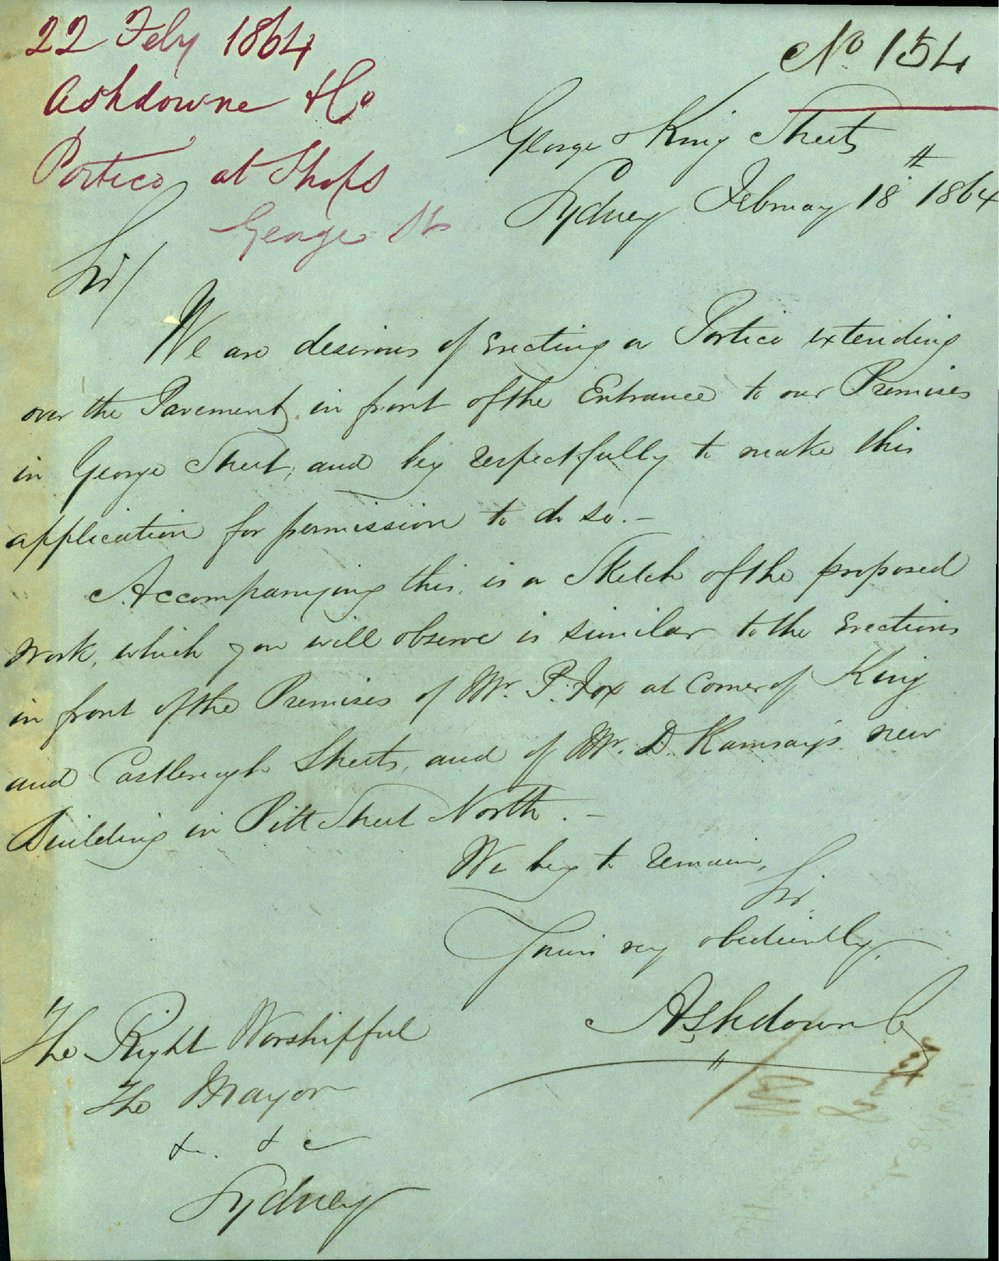 22 Feby 1864
Ashdowne & Co
Portico at Shops
George St
No 154
George & King Streets
Sydney February 18th 1864
Sir/
We are desirous of Erecting a Portico extending
over the Pavement, in front of the Entrance to our Premises
in George Street, and beg respectfully to make this
application for permission to do so.-
Accompanying this, is a Sketch of the proposed
work, which you will observe is similar to the Erections
in front of the Premises of Mr. P. Fox at Corner of King
and Castlereagh Streets, and of Mr. D. Ramsay's new
Building in Pitt Street North.-
We beg to remain,
Sir
Yours very obediently,
Ashdown & Co
The Right Worshipful
The Mayor
&. &c
Sydney